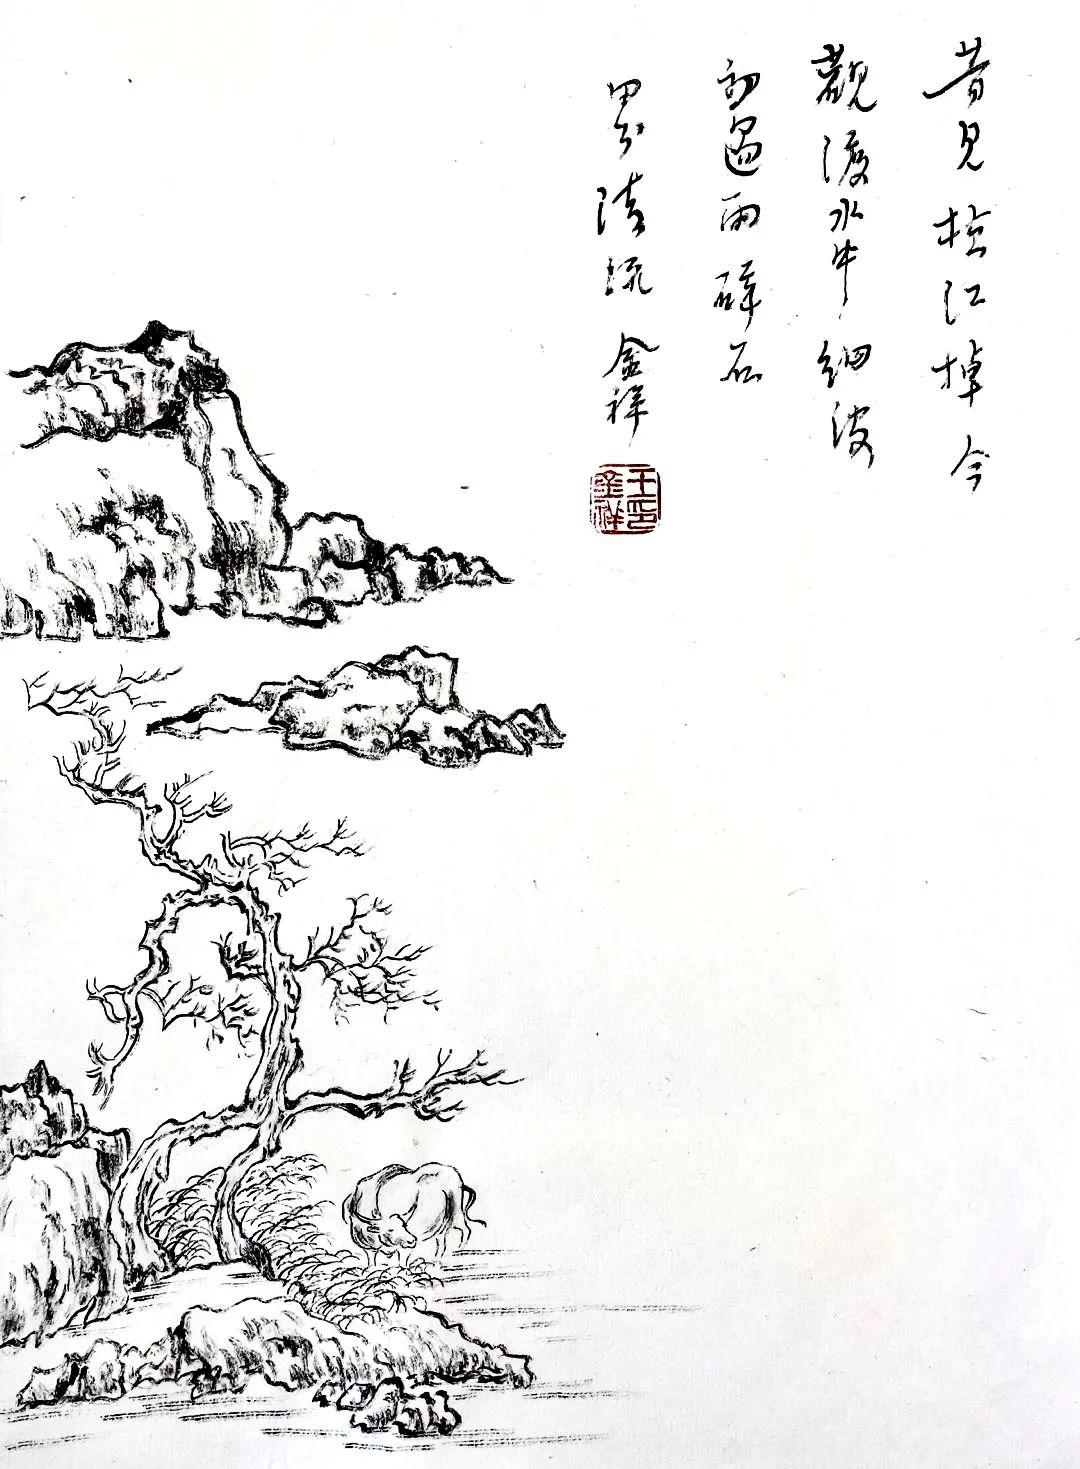 昔見江棹今
觀渡水牛細波
初過雨碎石
流 金祥
王印金祥